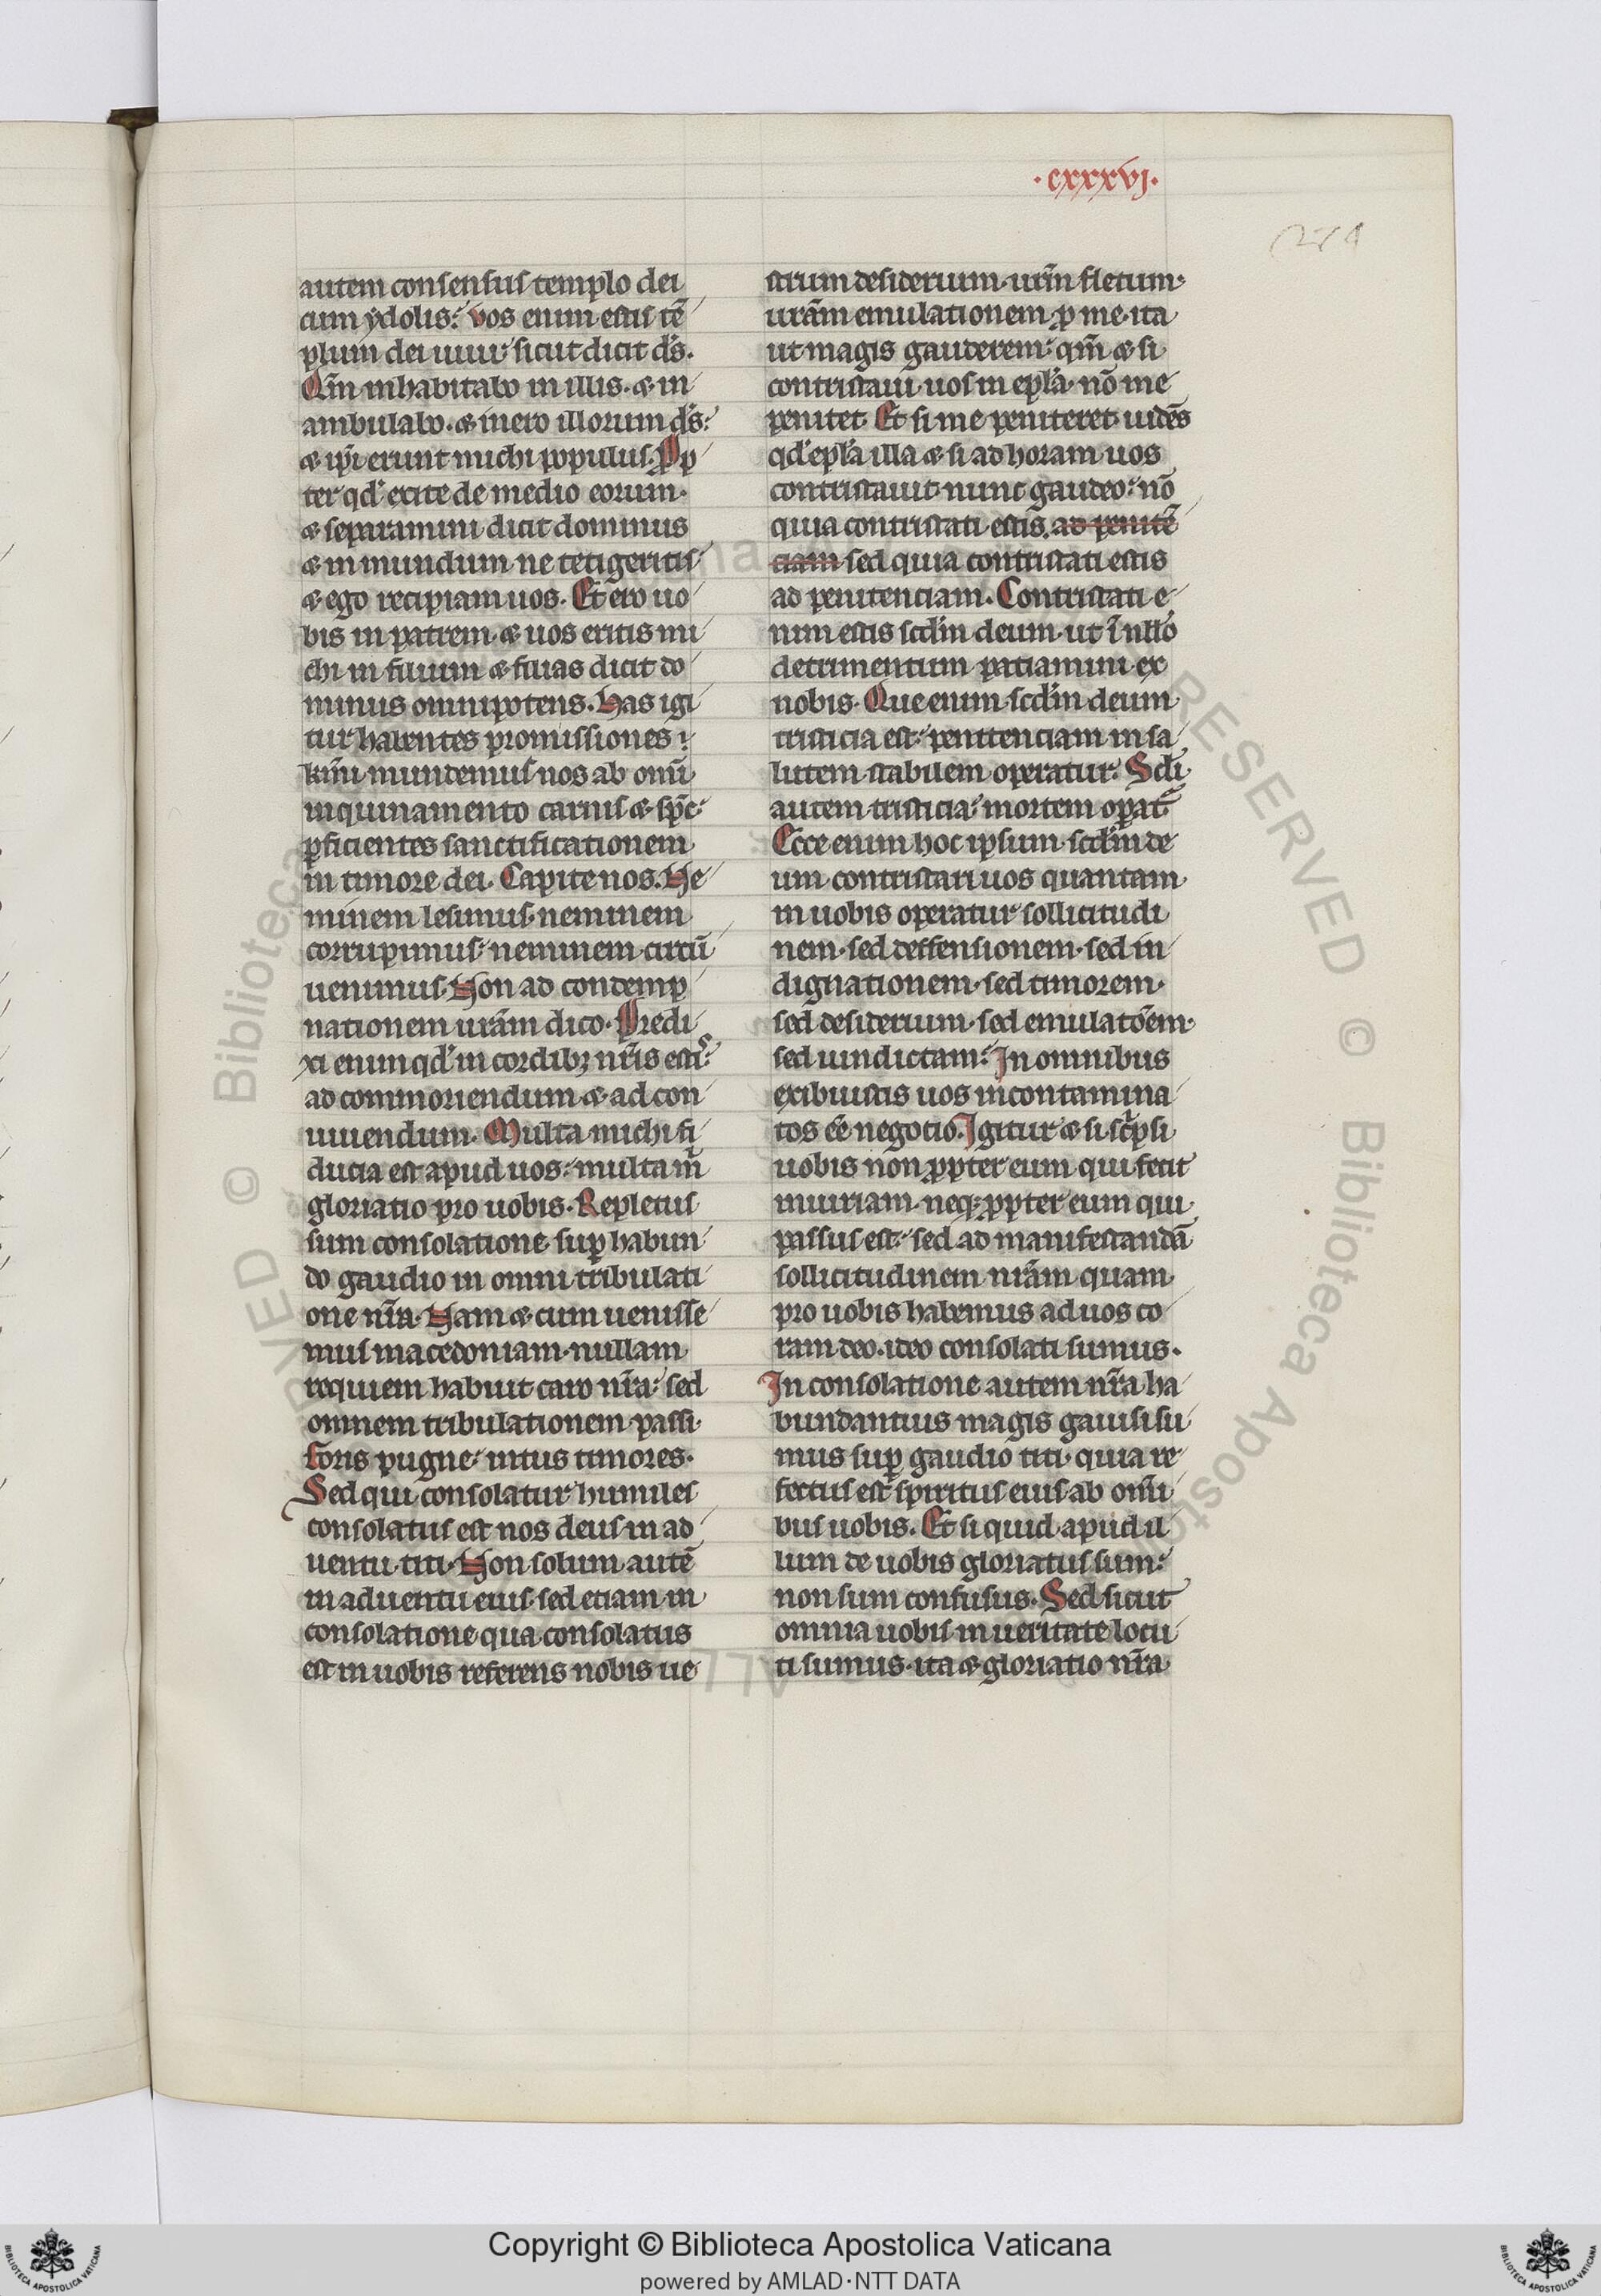 ·cxxxvj·
274
autem consensus templo dei
cum ydolis: vos enim estis tē
plum dei uiui: sicut dicit dn̄s.
Qm̄ inhabitabo in illis. & in
ambulabo. & in ero illorum ds̄:
& ip̄i erunt michi populus. Pꝓp
ter qd' exite de medio eorum.
& separamini dicit dominus
& inmundum ne tetigeritis:
& ego recipiam uos. Et ero uo
bis in patrem. & uos eritis mi
chi in filium & filias dicit do
minus omnipotens. Has igi
tur habentes promissiones:
km̄i mundemus nos ab om̄i
inquinamento carnis & sp̄c:
ꝑficientes sanctificationem
in timore dei. Capite nos. Ne
minem lesimus. neminem
corrupimus. neminem circū
uenimus. Non ad condemp
nationem urām dico. Predi
xi enim qd' in cordibꝫ nr̄is estis:
ad commoriendum & ad con
uiuendum. Multa michi fi
ducia est apud uos: multa m̄
gloriatio pro uobis. Repletus
sum consolatione suꝑ habun
do gaudio in omni tribulati
one nr̄a. Nam & cum uenisse
mus macedoniam. nullam
requiem habuit caro nr̄a: sed
omnem tribulationem passi
foris pugne: intus timores.
Sed qui consolatur humiles
consolatus est nos deus in ad
uentu titi. Non solum autē
in aduentu eius. sed etiam in
consolatione qua consolatus
est in uobis referens nobis ue
strum desiderium. urm̄ fletum.
urām emulationem ꝓ me. ita
ut magis gauderem: qm̄ & si
contristaui uos in epl'a. nō me
penitet. Et si me peniteret. uidēs
qd' epl'a illa & si ad horam uos
contristauit. nunc gaudeo: nō
quia contristati estis. ad penitē
ciam sed quia contristati estis
ad penitenciam. Contristati e
nim estis scd'm deum. ut ī nullo
detrimentum patiamini ex
nobis. Que enim scd'm deum
tristicia est: penitenciam in sa
lutem stabilem operatur. Scl'i
autem tristicia: mortem oꝑat'
Ecce enim hoc ipsum. scd'm de
um contristari uos quantam
in uobis operatur sollicitudi
nem. sed deffensionem. sed in
dignationem. sed timorem.
sed desiderium. sed emulatōem.
sed uindictam: In omnibus
exibuistis uos incontamina
tos eē negocio. Igitur & si scpsi
uobis non ꝓpter eum qui fecit
iniuriam. neqꝫ ꝓpter eum qui
passus est: sed ad manifestandā
sollicitudinem nrām quam
pro uobis habemus ad uos co
ram deo. ideo consolati sumus.
In consolatione autem nr̄a ha
bundantius magis gauisi su
mus suꝑ gaudio titi. quia re
fectus est spiritus eius ab om̄i
bus uobis. Et si quid apud il
lum de uobis gloriatus sum:
non sum confusus. Sed sicut
omnia uobis in ueritate locu
ti sumus. ita & gloriatio nr̄a
Copyright © Biblioteca Apostolica Vaticana
powered by AMLAD·NTT DATA